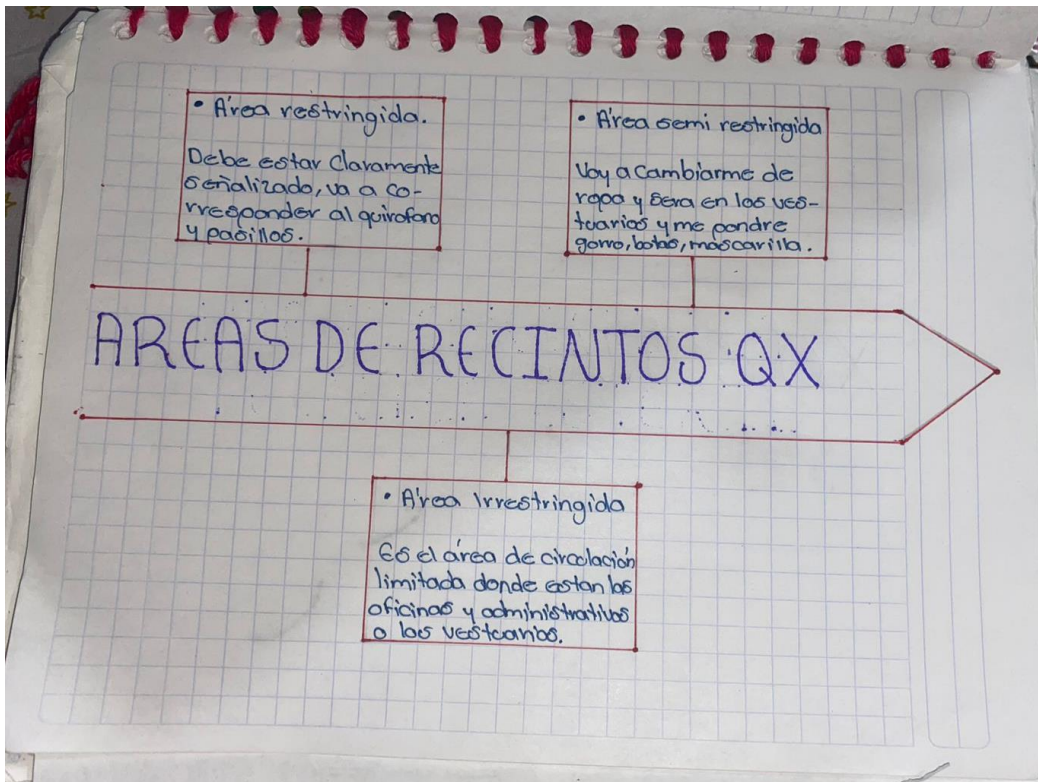 • Área restringida.
Debe estar claramente
señalizado, va a co-
rresponder al quirofano
y pasillos.
• Área semi restringida
Voy a cambiarme de
ropa y sera en los ves-
tuarios y me pondre
gorro, botas, mascarilla.
AREAS DE RECINTOS QX
• Área Irrestringida
Es el área de circulación
limitada donde estan las
oficinas y administrativos
o los vestuarios.